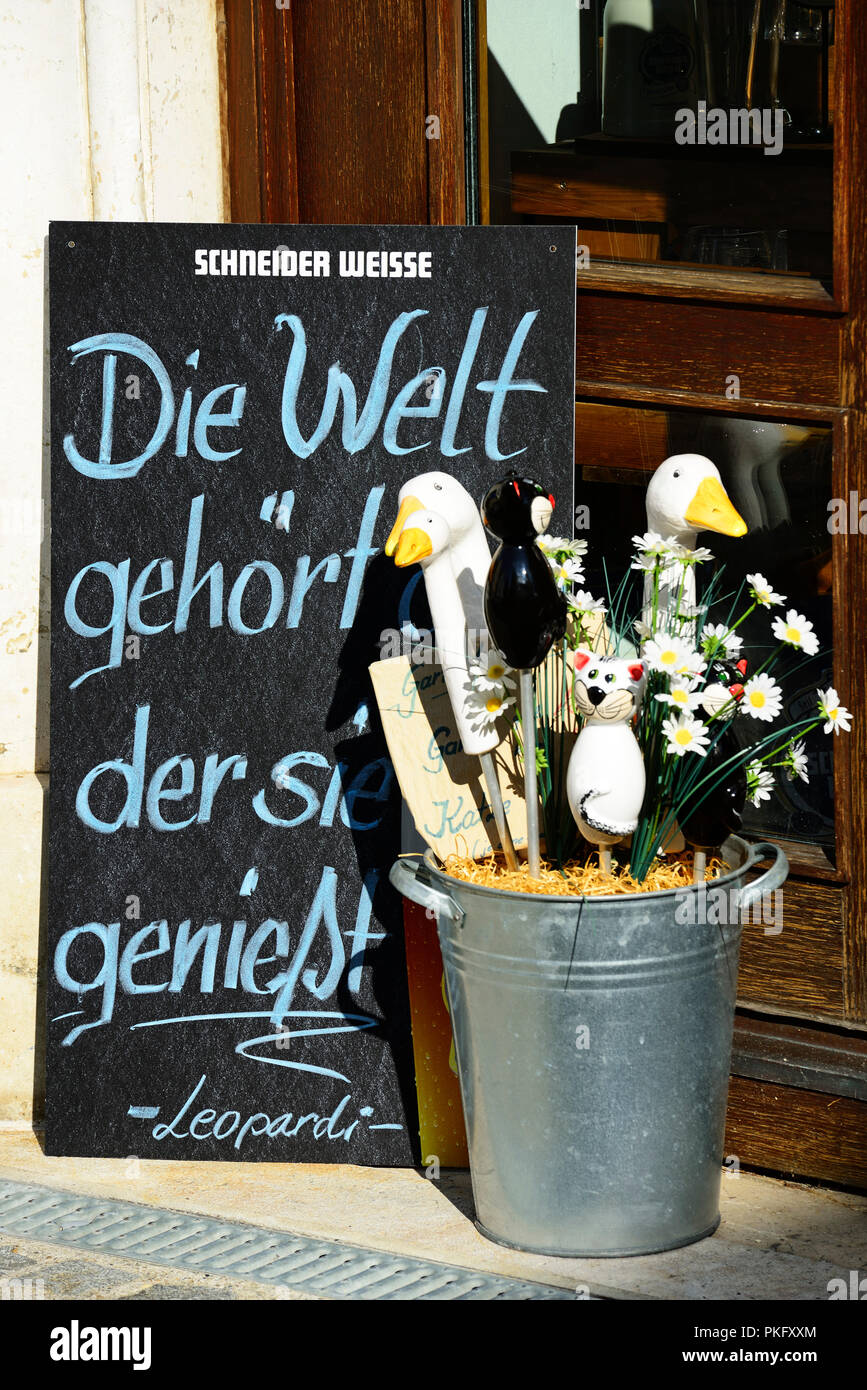 SCHNEIDER WEISSE
Die Welt
gehört
der sie
genießt
-Leopardi-
Katze
alamy
Image ID: PKFXXM
www.alamy.com